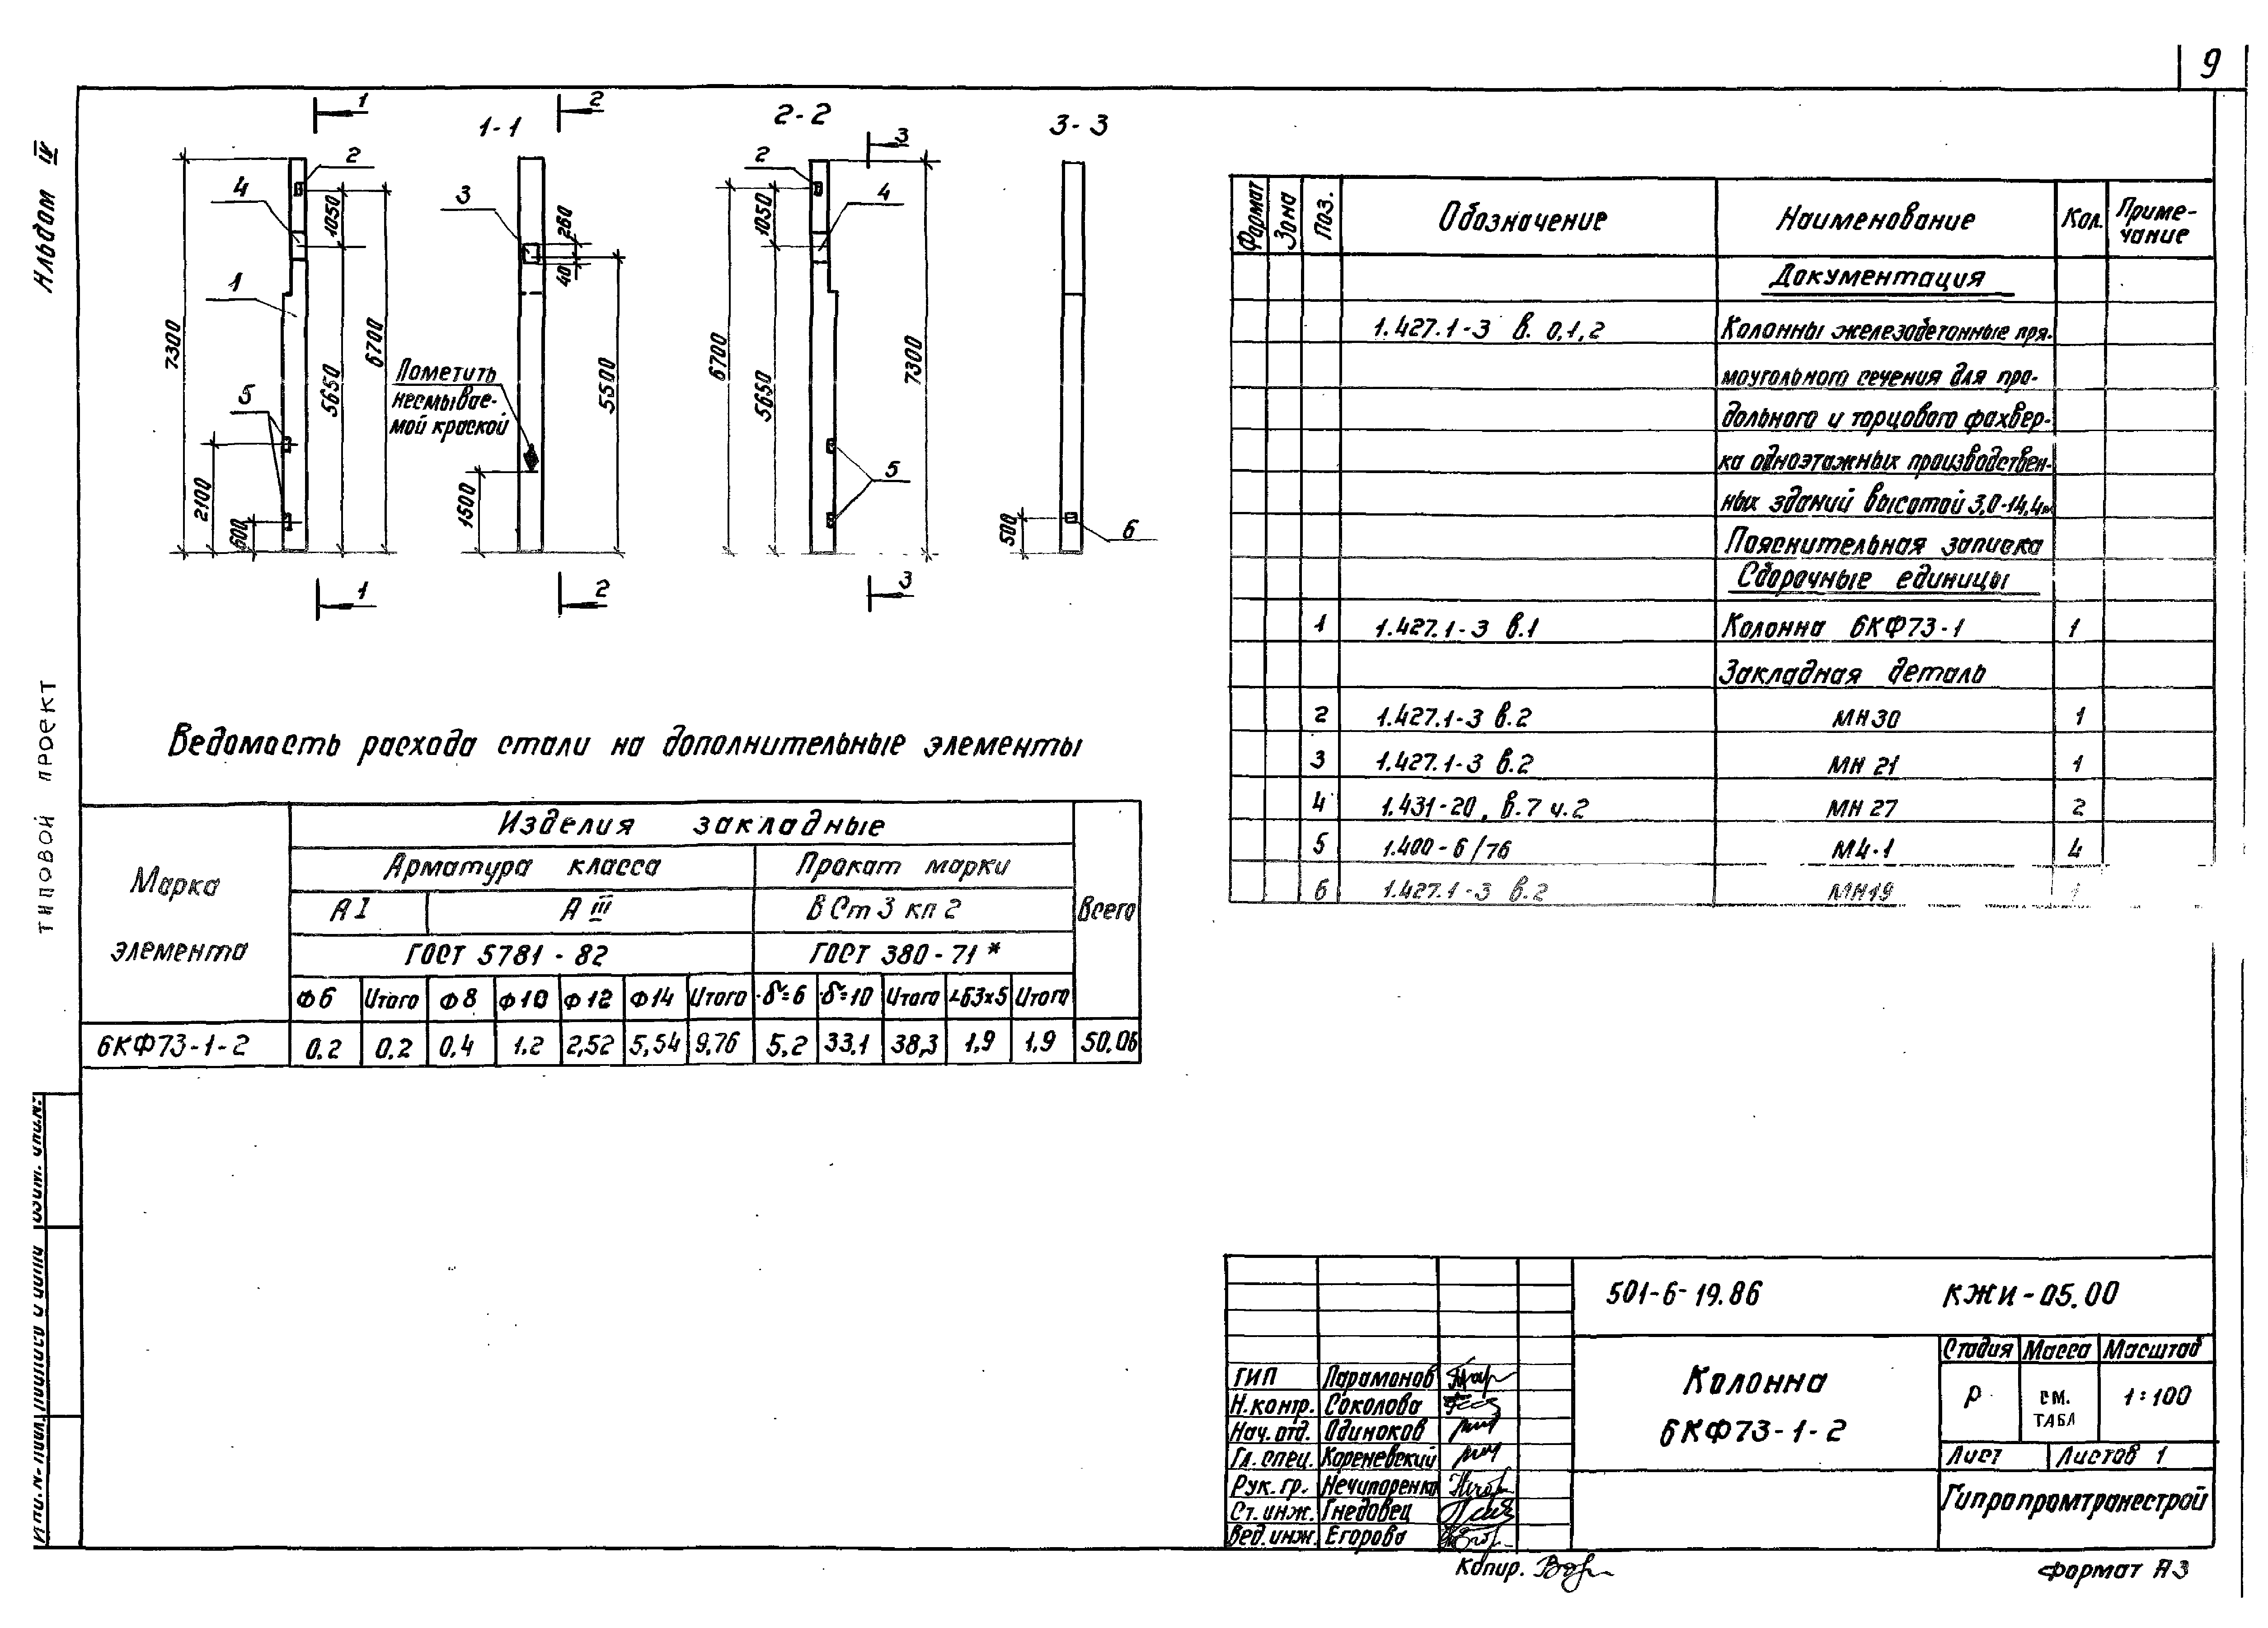 9
Альбом IV
типовой проект
1
1-1
2
2-2
3
3-3
2
4
1
5
7300
2100
600
1050
5650
6700
1
3
260
40
5500
1500
Пометить
несмывае-
мой краской
2
2
4
5
6700
1050
5650
7300
3
500
6
Формат
Зона
Поз.
Обозначение
Наименование
Кол.
Приме-
чание
Документация
1.427.1-3 в. 0,1,2 Колонны железобетонные пря-
моугольного сечения для про-
дольного и торцового фахвер-
ка одноэтажных производствен-
ных зданий высотой 3,0-14,4м
Пояснительная записка
Сборочные единицы
1 1.427.1-3 в.1 Колонна 6КФ73-1 1
Закладная деталь
2 1.427.1-3 в.2 МН30 1
3 1.427.1-3 в.2 МН 21 1
4 1.431-20, в.7 ч.2 МН 27 2
5 1.400-6/76 М4-1 4
6 1.427.1-3 в.2 МН19 1
Ведомость расхода стали на дополнительные элементы
Марка
элемента
Изделия закладные
Арматура класса Прокат марки
А I А III В Ст 3 кп 2 Всего
ГОСТ 5781-82 ГОСТ 380-71*
Ф6 Итого Ф8 Ф10 Ф12 Ф14 Итого δ=6 δ=10 Итого ∟63х5 Итого
6КФ73-1-2 0.2 0.2 0,4 1.2 2,52 5,54 9,76 5,2 33,1 38,3 1,9 1,9 50,06
Инв.№ подл. Подпись и дата Взам. инв.№
501-6-19.86 КЖИ-05.00
Колонна
6КФ73-1-2
Стадия Масса Масштаб
Р см.
ТАБЛ 1:100
Лист Листов 1
Гипропромтрансстрой
ГИП Парамонов
Н.контр. Соколова
Нач. отд. Одиноков
Гл. спец. Кореневский
Рук. гр. Нечипоренко
Ст. инж. Гнедовец
Вед. инж. Егорова
Копир.
Формат А3